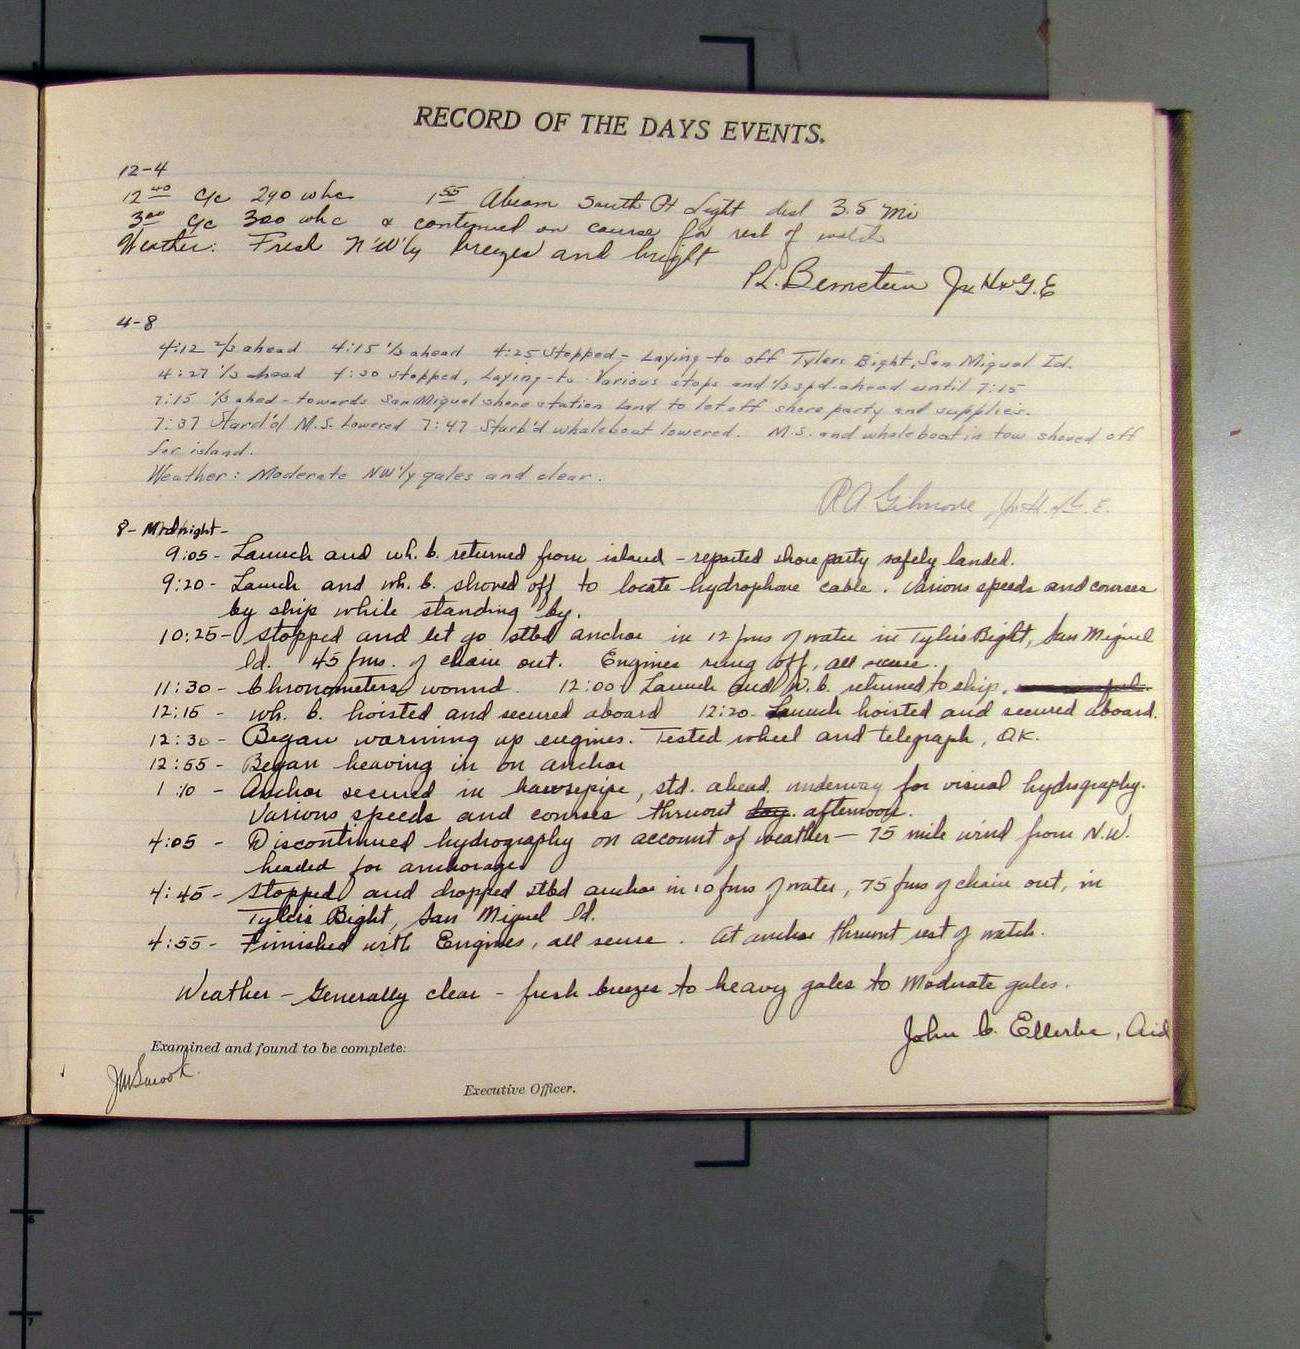 RECORD OF THE DAYS EVENTS.
12-4
12 40 C/c 290 whc 1 55 Abeam South Pt Light dist 3.5 Mi
3 00 C/c 300 whc & continued on course for rest of watch
Weather: Fresh N'W'ly breezes and bright
P.L. Bernstein Jr. H & G.E
4-8
4:12 2/3 ahead 4:15 1/3 ahead 4:25 Stopped - Laying-to off Tylers Bight, San Miguel Id.
4:27 1/3 ahead 4:30 stopped, Laying-to Various stops and 1/3 spd. ahead until 7:15
7:15 1/3 ahed - towards San Miguel shore station Land to let off shore party and supplies.
7:37 Starb'd M.S. Lowered 7:47 Starb'd whaleboat lowered. M.S. and whaleboat in tow shoved off
for island.
Weather: Moderate NW'ly gales and clear.
R.A. Gilmore, Jr. H. & G. E.
8- Midnight-
9:05 - Launch and wh. b. returned from island - reported shore party safely landed.
9:20 - Launch and wh. b. shoved off to locate hydrophone cable. Various speeds and courses
by ship while standing by.
10:25 - Stopped and let go stbd anchor in 12 fms of water in Tyler's Bight, San Miguel
Id. 45 fms. of chain out. Engines rung off, all secure.
11:30 - Chronometers wound. 12:00 Launch and W. b. returned to ship.
12:15 - wh. b. hoisted and secured aboard 12:20 - Launch hoisted and secured aboard.
12:30 - Began warming up engines. Tested wheel and telegraph, OK.
12:55 - Began heaving in on anchor
1:10 - Anchor secured in hawsepipe, std. ahead. underway for visual hydrography.
Various speeds and courses thruout day. afternoon.
4:05 - Discontinued hydrography on account of weather — 75 mile wind from N.W.
headed for anchorage
4:40 - Stopped and dropped stbd anchor in 10 fms of water, 75 fms of chain out, in
Tyler's Bight, San Miguel Id.
4:55 - Finnished with Engines, all secure. At anchor thruout rest of watch.
Weather - Generally clear - fresh breezes to heavy gales to Moderate gales.
John C. Ellerbe, Aid
Examined and found to be complete:
J.W. Smook
Executive Officer.
6
7